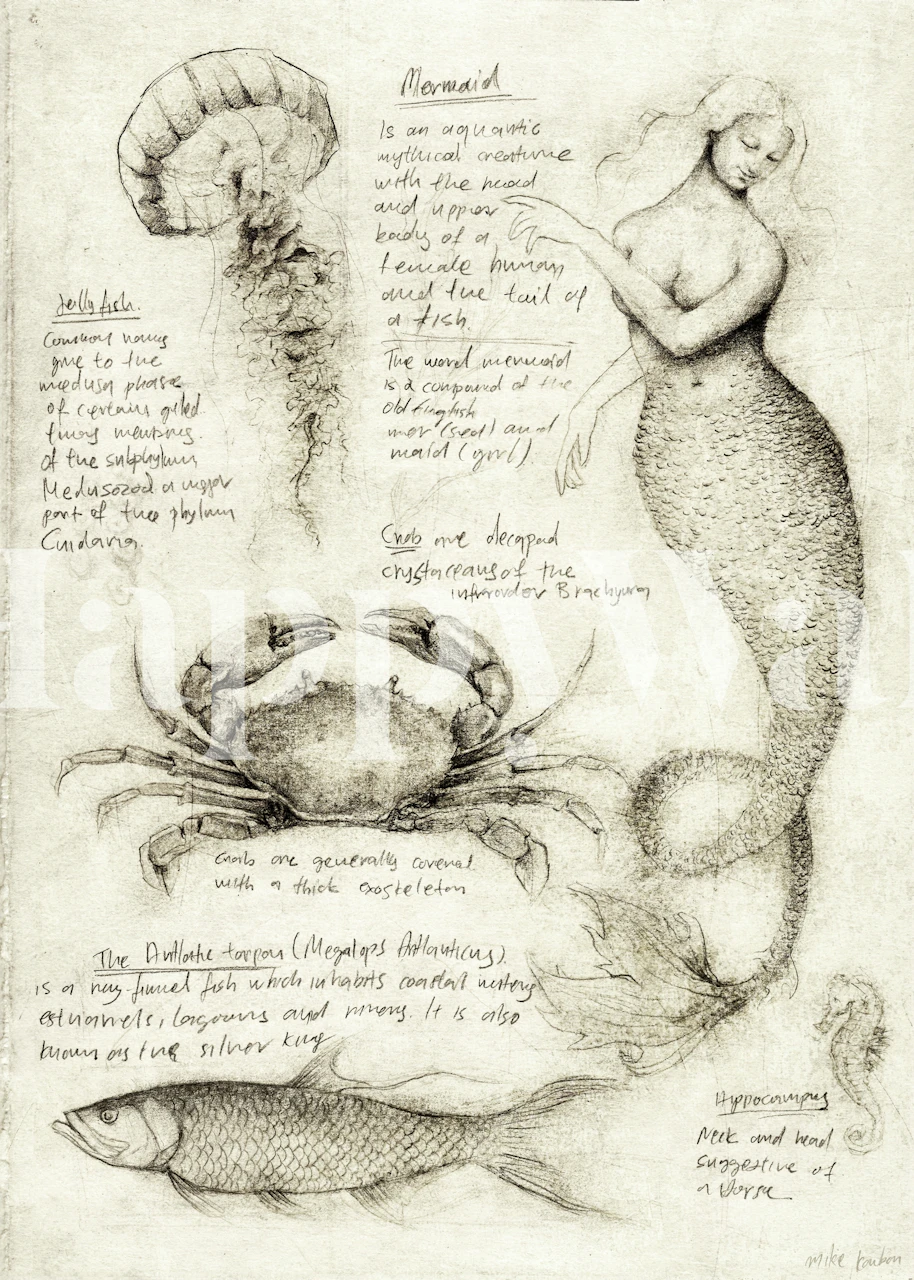 Mermaid
Is an aquantic
mythical creature
with the head
and upper
body of a
female human
and the tail of
a fish.
The word mermaid
is a compound of the
Old English
mer (sea) and
maid (girl).
Jelly fish.
Common names
give to the
medusa phase
of certain
of the subphylum
Medusozoa a major
part of the phylum
Cnidaria.
Crab are decapod
crystaceans of the
infraorder Brachyura
happywall
Crab are generally covered
with a thick exosteleton
The Atlantic tarpon (Megalops Atlanticus).
is a ray-finned fish which inhabits coastal waters
estuaries, lagoons and rivers. It is also
known as the silver king
Hippocampus
Neck and head
suggestive of
a Horse
mike